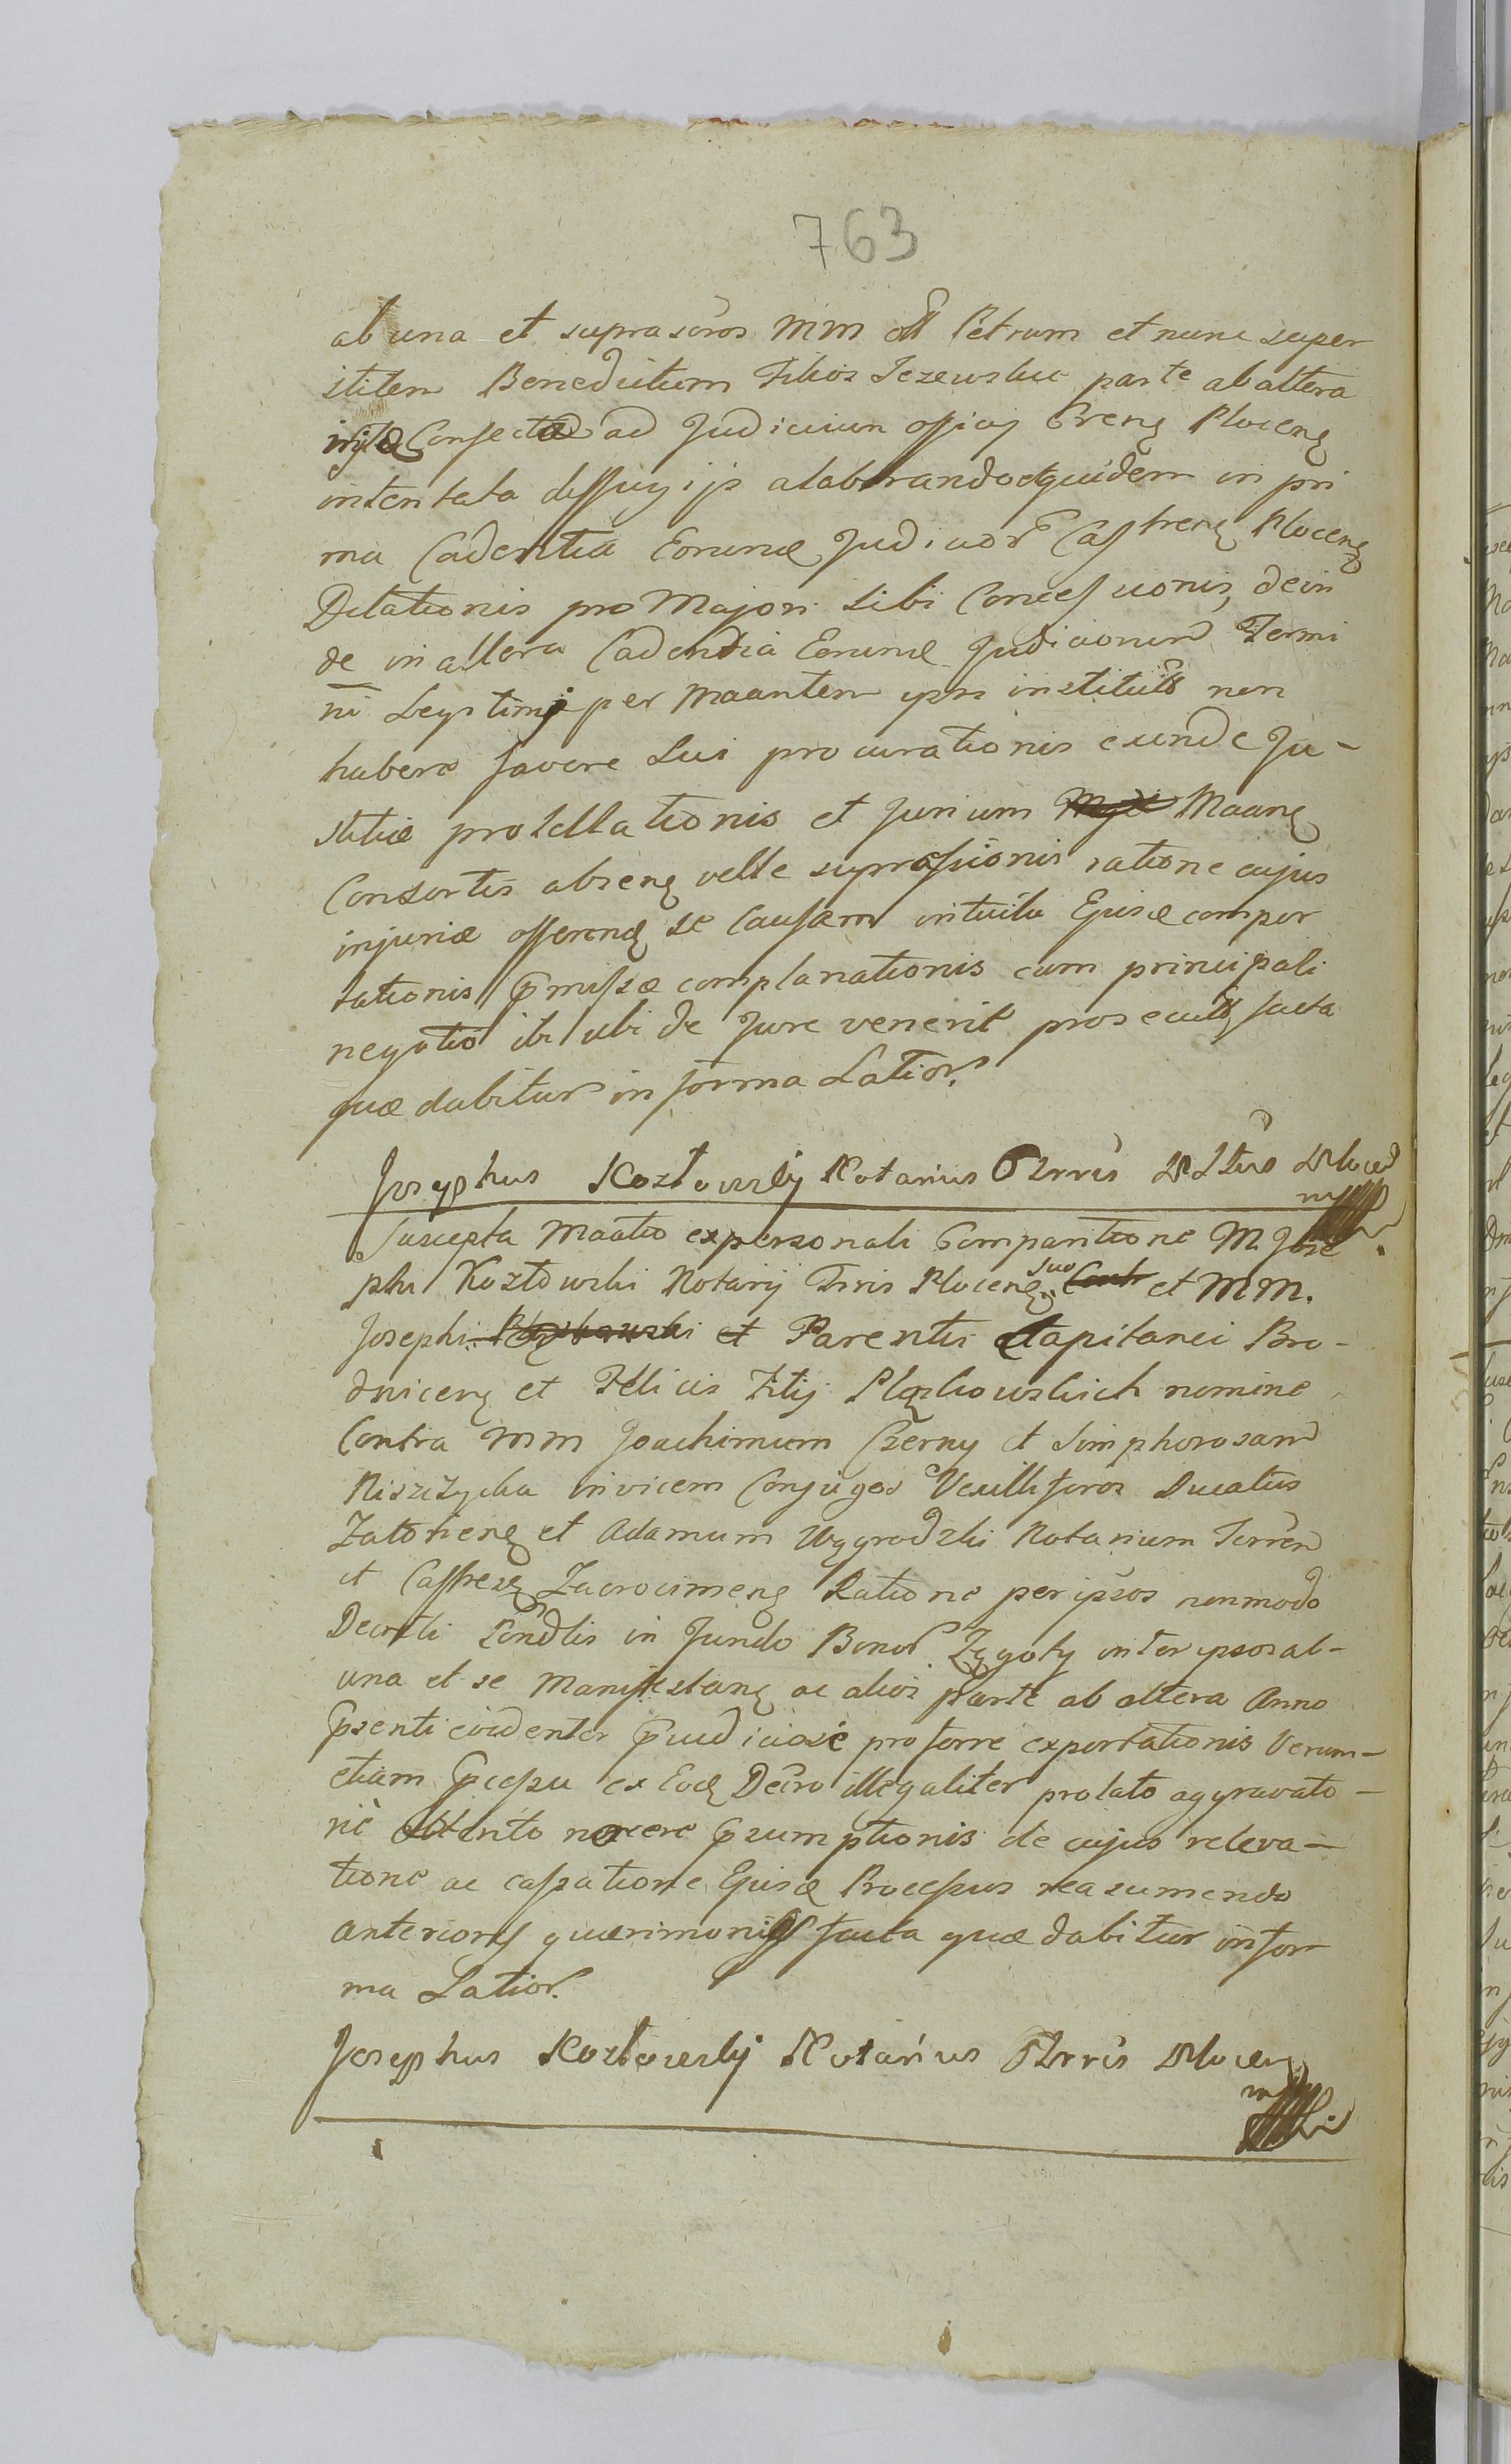 763
ab una et suprascros MM olt Petrum et nunc super
stitem Benedictum Filios Jezewskie parte ab altera
Confectæ ad Judicium officij Crens Plocens
intentata diffugijs alaborando et quidem in pri
ma Cadentia Eorund Judicior Castrens Plocens
Dilationis pro Majori Sibi Concessionis, dein
de in altera Cadentia Eorund Judiciorum Termi
ni Legitimi per Maantem ipsi instituti non
habere favore Sui procurationis exinde Ju-
stitiæ protellationis et Jurium Maans
Consortis absens velle suprassionis ratione cujus
injuriæ offerens se Causam intuitu Ejusd compor
tationis pmissæ complanationis cum principali
negotio ibi ubi de Jure venerit prosecut facta
quæ dabitur in forma Latiori
Josephus Kozłowsky Notarius Trris Plocen
mp
Suscepta Maatio ex personali Comparitione M. Jose
phi Kozłowski Notarij Trris Plocens suo et MM.
Josephi et Parentis Capitanei Bro-
dnicens et Felicis Filij Pląskowskich nomine
Contra MM Joachimum Czerny et Simphorosam
Niszczycka invicem Conjuges Vexilliferos Ducatus
Zatoriens et Adamum Wygrodzki Notarium Terren
et Castrens Zacrocimens Ratione per ipsos nonmodo
Decreti Condlis in fundo Bonor Zągoty inter ipsos ab-
una et se Manifestans ac alios parte ab altera Anno
psenti evidenter pjudiciose proferre exportationis Verum-
etiam pcessu ex Eod Decro illegaliter prolato aggravato-
rie obtento nocere psumptionis de cujus releva-
tione ac cassatione Ejusd Processus reasumendo
anteriores querimonias facta quæ dabitur in for
ma Latior.
Josephus Kozłowsky Notarius Trris Plocens
mp